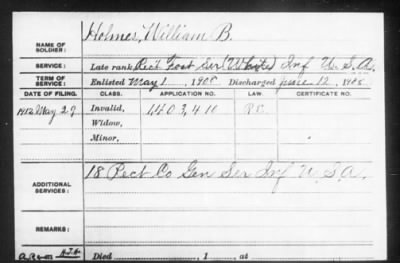 Holmes, William B.
NAME OF SOLDIER:
SERVICE: Late rank Rec't Post Ser (White) Inf U.S.A.
TERM OF SERVICE: Enlisted May 1, 1908 Discharged June 12, 1908
DATE OF FILING. CLASS. APPLICATION NO. LAW. CERTIFICATE NO.
1912 May 27 Invalid, 1,403,410
Widow,
Minor,
ADDITIONAL SERVICES: 18 Rect Co Gen Ser Inf U S A.
REMARKS:
Died , 1 , at